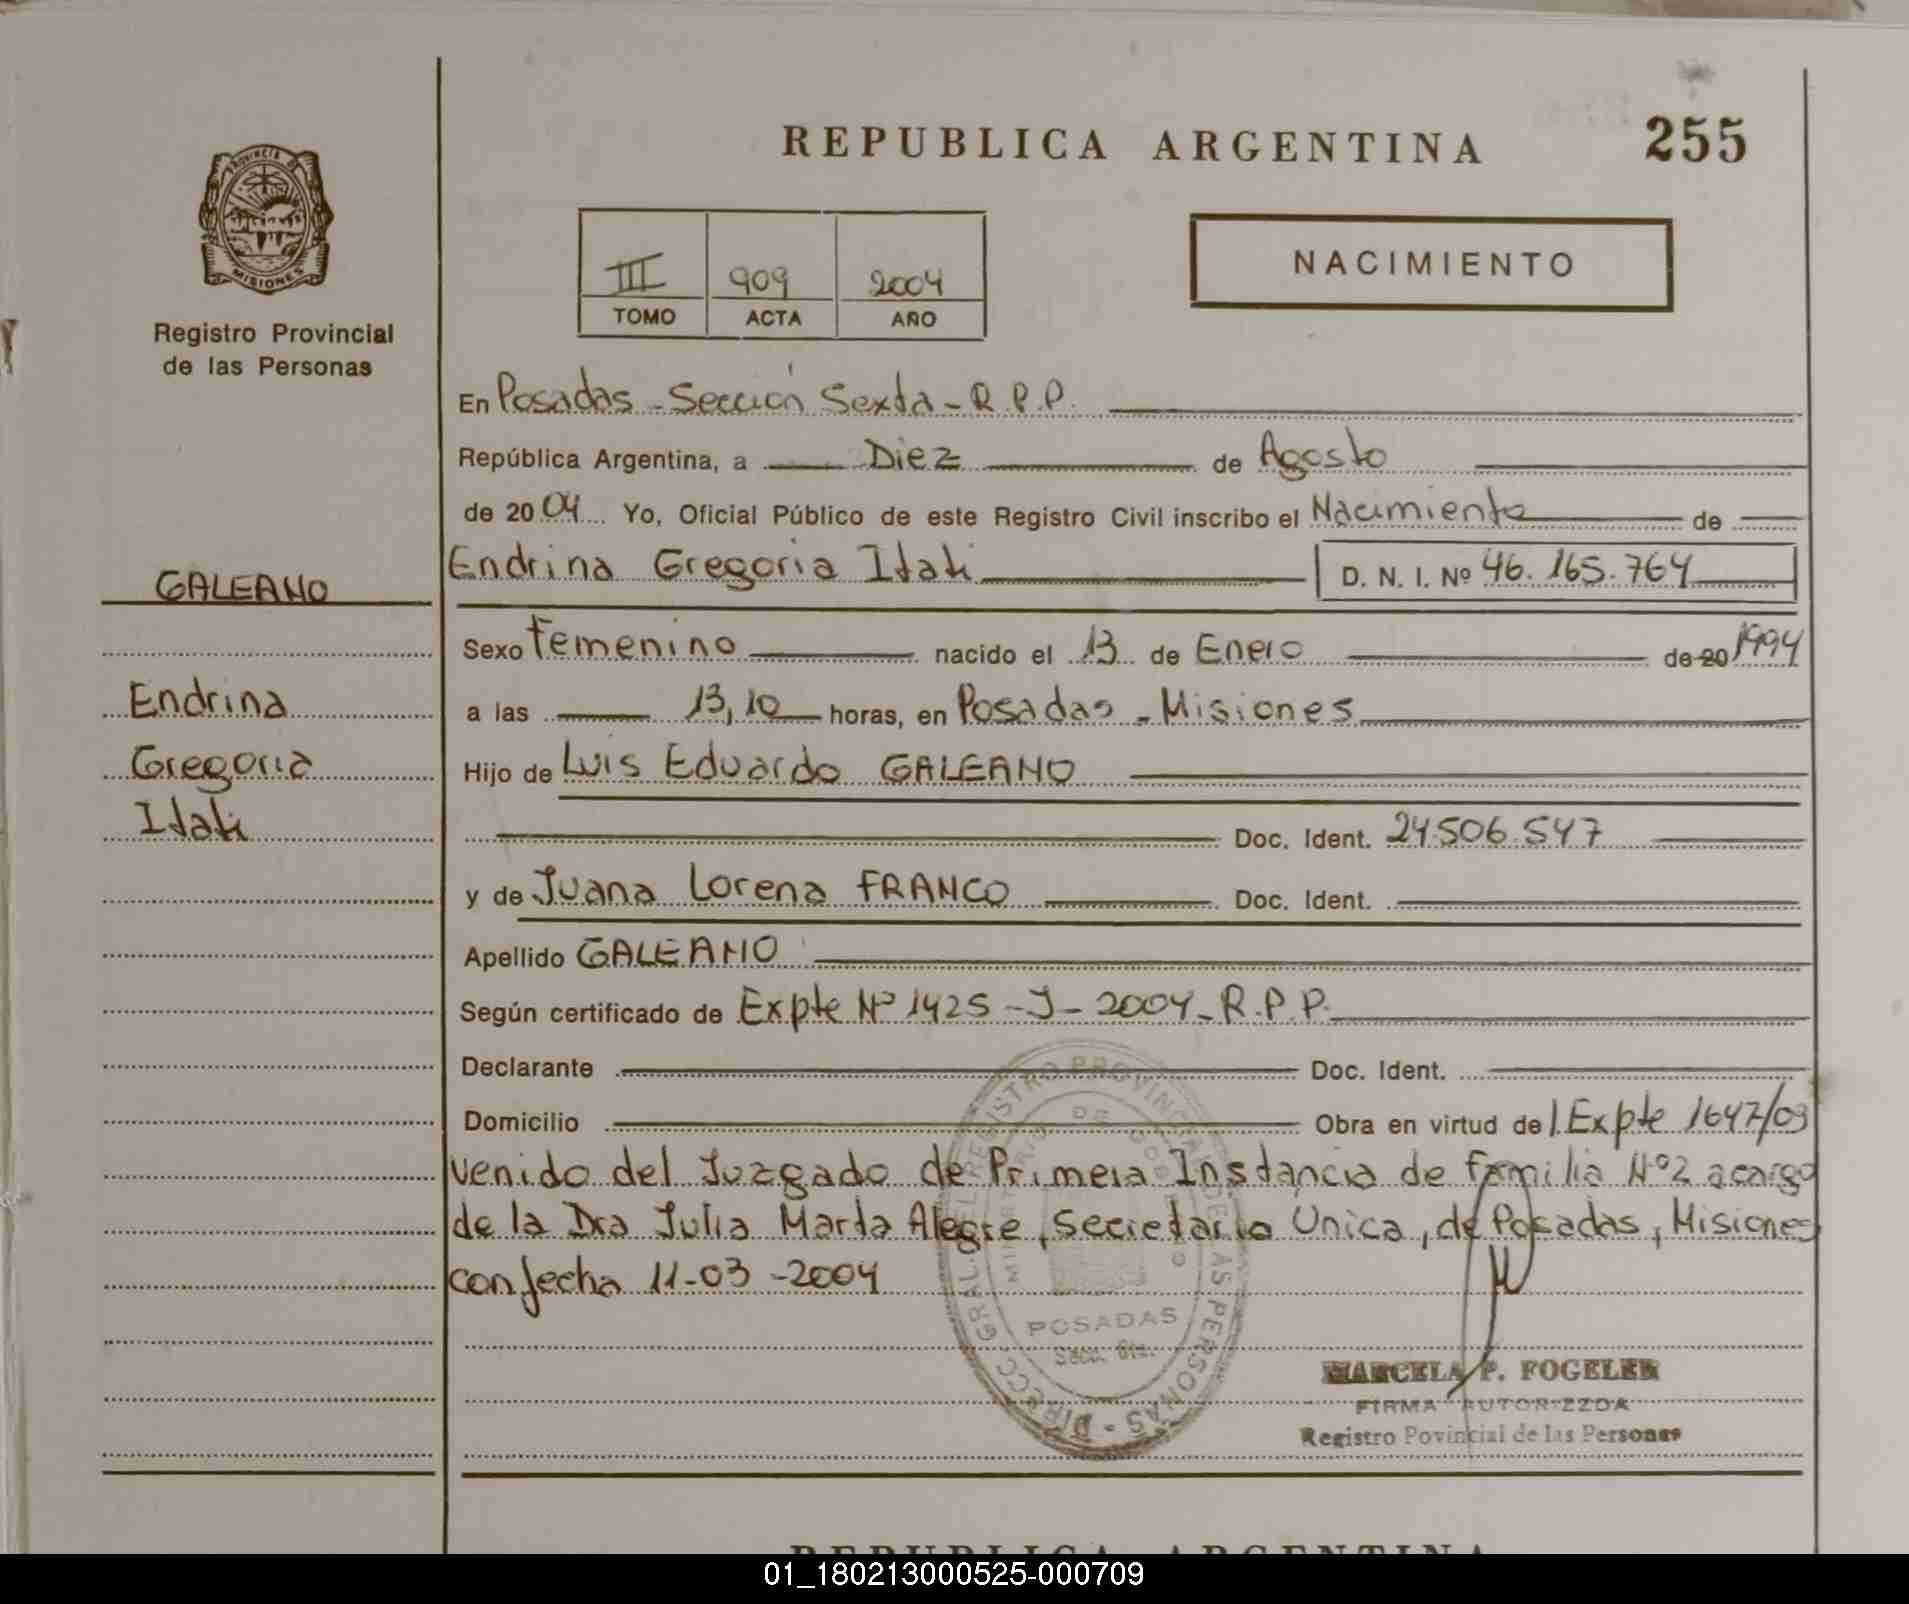 REPUBLICA ARGENTINA
255
PROVINCIA DE
MISIONES
Registro Provincial
de las Personas
III 909 2004
TOMO ACTA AÑO
NACIMIENTO
En Posadas - Sección Sexta - R.P.P.
República Argentina, a Diez de Agosto
de 2004 Yo, Oficial Público de este Registro Civil inscribo el Nacimiento de
Endrina Gregoria Itati D. N. I. Nº 46.165.764
GALEANO
Sexo Femenino nacido el 13 de Enero de 20 1994
Endrina
a las 13,10 horas, en Posadas - Misiones
Gregoria
Hijo de Luis Eduardo GALEANO
Itati
Doc. Ident. 24.506.547
y de Juana Lorena FRANCO Doc. Ident.
Apellido GALEANO
Según certificado de Expte Nº 1425 - J - 2004 - R.P.P.
Declarante Doc. Ident.
Domicilio Obra en virtud de Expte 1647/03
venido del Juzgado de Primera Instancia de Familia Nº2 a cargo
de la Dra Julia Marta Alegre, Secretaria Unica, de Posadas, Misiones
con fecha 11-03-2004
DIRECC. GRAL. DEL REGISTRO PROVINCIAL DE LAS PERSONAS
MINISTERIO DE GOBIERNO
POSADAS
Secc. 6ta.
MARCELA P. FOGELER
FIRMA AUTORIZZDA
Registro Povincial de las Personas
REPUBLICA ARGENTINA
01_180213000525-000709